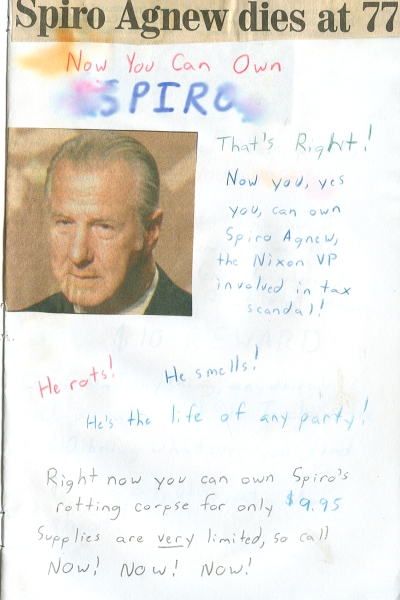 Spiro Agnew dies at 77
Now You Can Own
SPIRO
That's Right!
Now you, yes
you, can own
Spiro Agnew,
the Nixon VP
involved in tax
scandal!
He rots!
He smells!
He's the life of any party!
Right now you can own Spiro's
rotting corpse for only $9.95
Supplies are very limited, so call
Now! Now! Now!